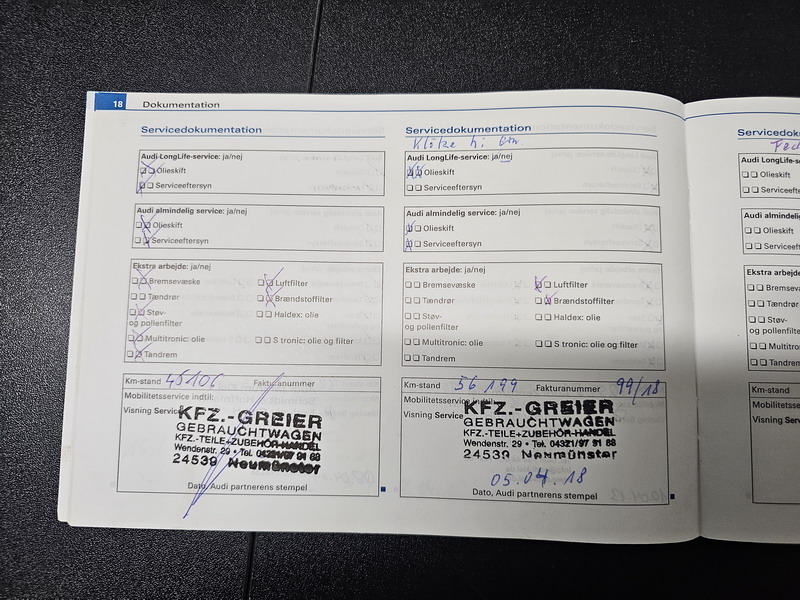 18 Dokumentation
Servicedokumentation
Audi LongLife-service: ja/nej
Olieskift
Serviceeftersyn
Audi almindelig service: ja/nej
Olieskift
Serviceeftersyn
Ekstra arbejde: ja/nej
Bremsevæske
Luftfilter
Tændrør
Brændstoffilter
Støv-
og pollenfilter
Haldex: olie
Multitronic: olie
S tronic: olie og filter
Tandrem
Km-stand 45106 Fakturanummer
Mobilitetsservice indtil:
Visning Service
KFZ.-GREIER
GEBRAUCHTWAGEN
KFZ.-TEILE+ZUBEHÖR-HANDEL
Wendenstr. 29 • Tel. 04321/97 91 68
24539 Neumünster
Dato, Audi partnerens stempel
Servicedokumentation
Audi LongLife-service: ja/nej
Olieskift
Serviceeftersyn
Audi almindelig service: ja/nej
Olieskift
Serviceeftersyn
Ekstra arbejde: ja/nej
Bremsevæske
Luftfilter
Tændrør
Brændstoffilter
Støv-
og pollenfilter
Haldex: olie
Multitronic: olie
S tronic: olie og filter
Tandrem
Km-stand 56 199 Fakturanummer 99/18
Mobilitetsservice indtil:
Visning Service
KFZ.-GREIER
GEBRAUCHTWAGEN
KFZ.-TEILE+ZUBEHÖR-HANDEL
Wendenstr. 29 • Tel. 04321/97 91 68
24539 Neumünster
05.04.18
Dato, Audi partnerens stempel
Servicedo
Audi LongLife-se
Olieskift
Serviceefters
Audi almindelig
Olieskift
Serviceefte
Ekstra arbejde:
Bremsevæs
Tændrør
Støv-
og pollenfilter
Multitronic:
Tandrem
Km-stand
Mobilitetsservice
Visning Servi